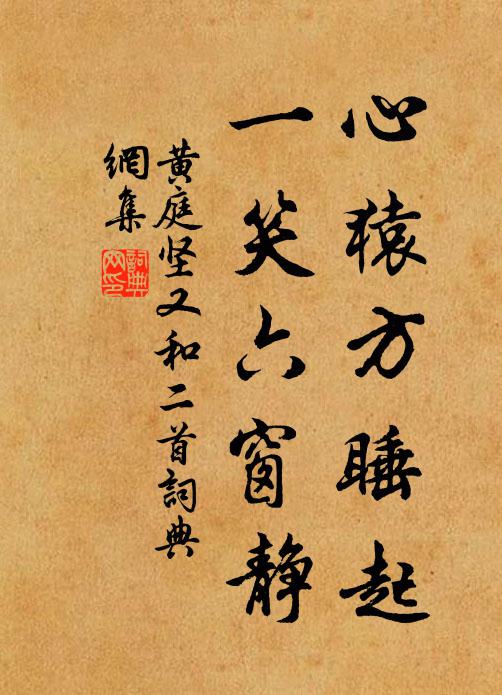 心猿方睡起
一笑六窗静
黄庭坚又和二首詞典
網集
詞典
网印